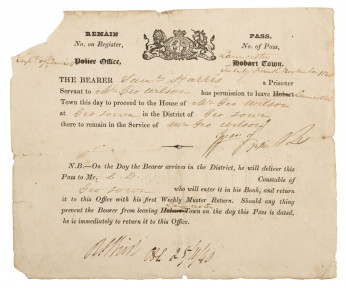 REMAIN
No. on Register,
Police Office,
PASS.
No. of Pass,
Hobart Town.
THE BEARER Saml Harris a Prisoner
Servant to Mr Geo Wilson has permission to leave Hobart Launceston
Town this day to proceed to the House of Mr Geo Wilson
at Geo Town in the District of Geo Town
there to remain in the Service of Mr Geo Wilson
N.B.—On the Day the Bearer arrives in the District, he will deliver this
Pass to Mr. C. D. Constable of
Geo Town who will enter it in his Book, and return
it to this Office with his first Weekly Muster Return. Should any thing
prevent the Bearer from leaving Hobart Town on the day this Pass is dated,
he is immediately to return it to this Office.